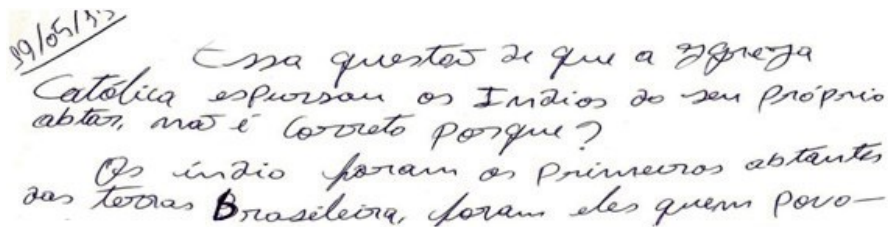 19/05/15
Essa questão de que a Igreja
Católica espursou os Indios do seu Próprio
abtar, não é Correto Porque?
Os índio foram os Primeiros abtantes
das terras Brasileira, foram eles quem povo-